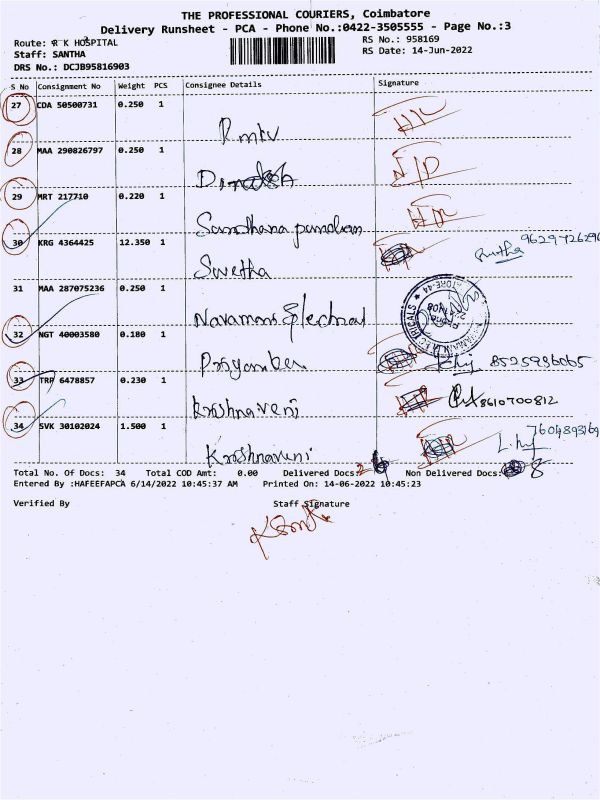 THE PROFESSIONAL COURIERS, Coimbatore
Delivery Runsheet - PCA - Phone No.:0422-3505555 - Page No.:3
Route: R K HOSPITAL
RS No.: 958169
Staff: SANTHA
RS Date: 14-Jun-2022
DRS No.: DCJB95816903
S No Consignment No Weight PCS Consignee Details Signature
27 CDA 50500731 0.250 1
28 MAA 290826797 0.250 1
Dinaksh N/D
29 MRT 217710 0.220 1
Sandhana pandian
30 KRG 4364425 12.350 1 9629726296
Swetha
31 MAA 287075236 0.250 1
Navamani Electrical
32 NGT 40003580 0.180 1
Priyanka 8525936065
33 TRP 6478857 0.230 1
Krishnaveni 8610700812
34 SVK 30102024 1.500 1 7604893169
Krishnaveni
Total No. Of Docs: 34 Total COD Amt: 0.00 Delivered Docs: Non Delivered Docs: 8
Entered By :HAFEEFAPCA 6/14/2022 10:45:37 AM Printed On: 14-06-2022 10:45:23
Verified By Staff Signature